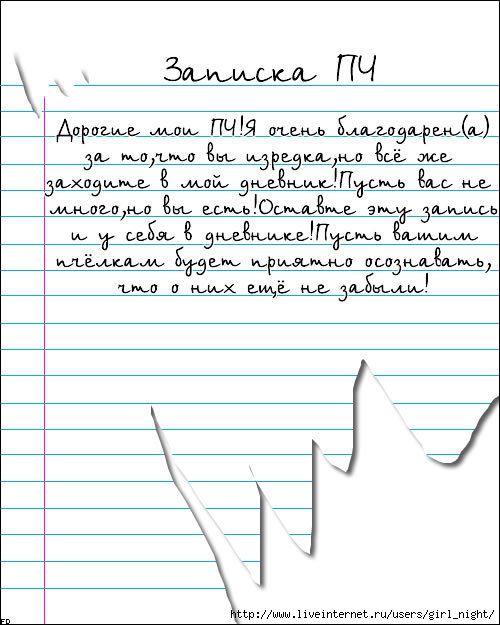 Записка ПЧ
Дорогие мои ПЧ!Я очень благодарен(а)
за то,что вы изредка,но всё же
заходите в мой дневник!Пусть вас не
много,но вы есть!Оставте эту запись
и у себя в дневнике!Пусть вашим
пчёлкам будет приятно осознавать,
что о них ещё не забыли!
http://www.liveinternet.ru/users/girl_night/
FD